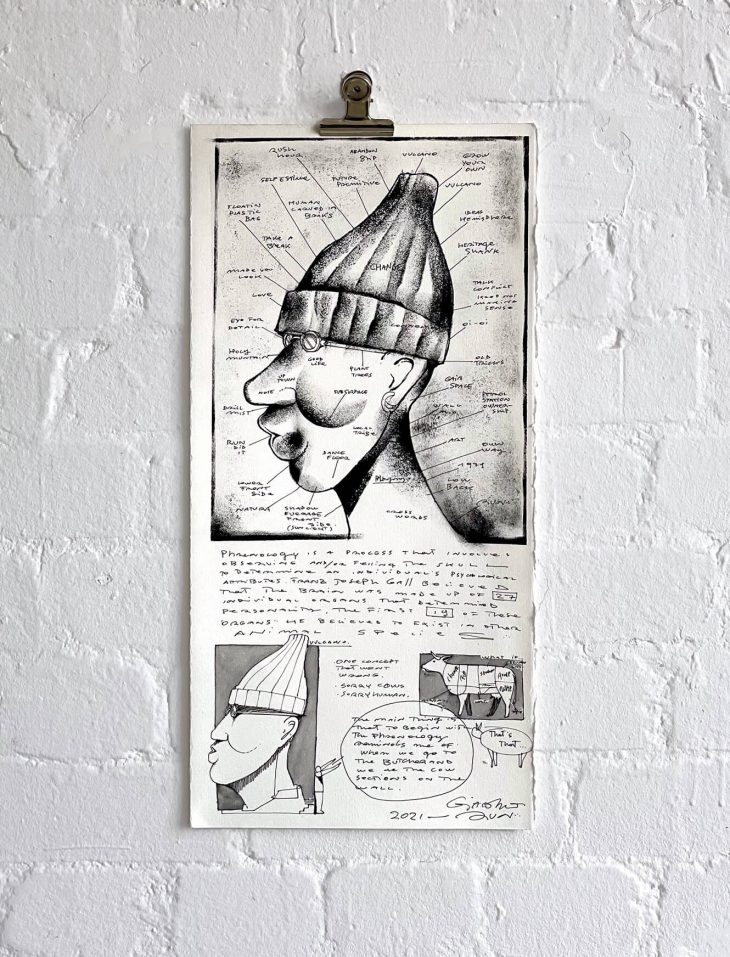 RUSH
HOUR
ABANDON
SHIP
VULCANO
GROW
YOUR
OWN
SELF ESTEEM
FUTURE
PRIMITIVE
VULCANO
FLOATIN
PLASTIC
BAG
HUMAN
CARVED IN
IDEAS
HEMISPHERE
TAKE A
BREAK
HERITAGE
SHANK
CHANGE
MADE YOU
LOOK
TALK
CONFLICT
LOVE
MAKING
SENSE
EYE FOR
DETAIL
OI-OI
HOLY
MOUNTAIN
GOOD
LIFE
PLANT
TREES
OLD
UP
TOWN
GAIA
SPACE
NOTE
SUBSURFACE
PETROL
STATION
OWNER-
SHIP
DRILL
MIST
WALL
LOCAL
TRIBE
ART
RUN
DID
IT
DANCE
FLOOR
OWN
WAY
1971
LOWER
FRONT
SIDE
LOW
BACK
NATURA
SHADOW
FRONT
SIDE
(SUNLIGHT)
CROSS
WORDS
PHRENOLOGY IS A PROCESS THAT INVOLVES
OBSERVING AND/OR FEELING THE SKULL
TO DETERMINE AN INDIVIDUAL'S PSYCHOLOGICAL
ATTRIBUTES. FRANZ JOSEPH GALL BELIEVED
THAT THE BRAIN WAS MADE UP OF 27
INDIVIDUAL ORGANS THAT DETERMINED
PERSONALITY, THE FIRST 19 OF THESE
ORGANS HE BELIEVED TO EXIST IN OTHER
ANIMAL SPECIES
VULCANO.
. ONE CONCEPT
THAT WENT
WRONG.
. SORRY COWS.
. SORRY HUMAN.
WHAT IF
THE MAIN THING IS
THAT TO BEGIN WITH
THE PHRENOLOGY
REMINDS ME OF
WHEN WE GO TO
THE BUTCHER AND
WE SEE THE COW
SECTIONS ON THE
WALL.
THAT'S
THAT...
2021